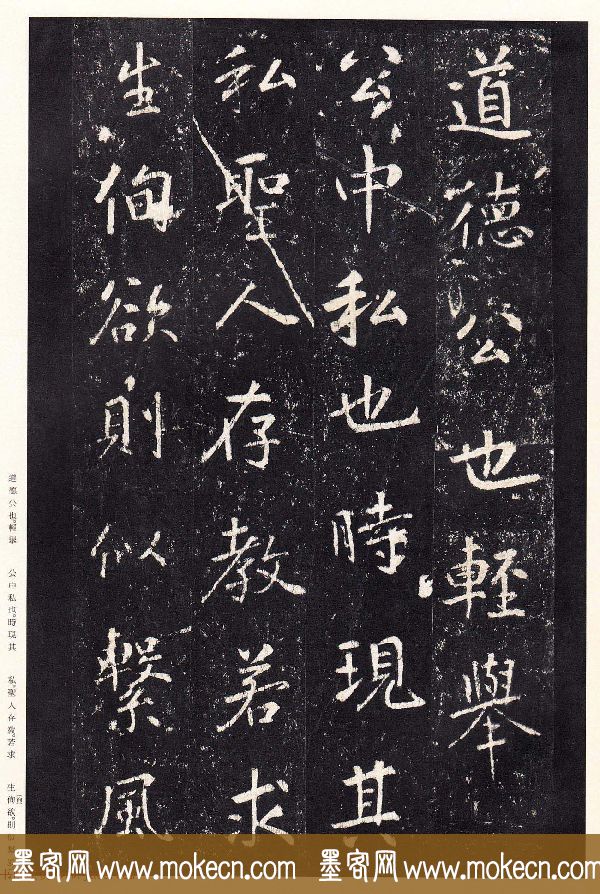 道德公也輕舉
公中私也時現其
私聖人存教若求
生徇欲則似繫風
道德公也。輕舉 公中私也。時現其 私。聖人存教。若求 生徇欲。則似繫
墨客网 www.mokecn.com 墨客网 www.mokecn.com